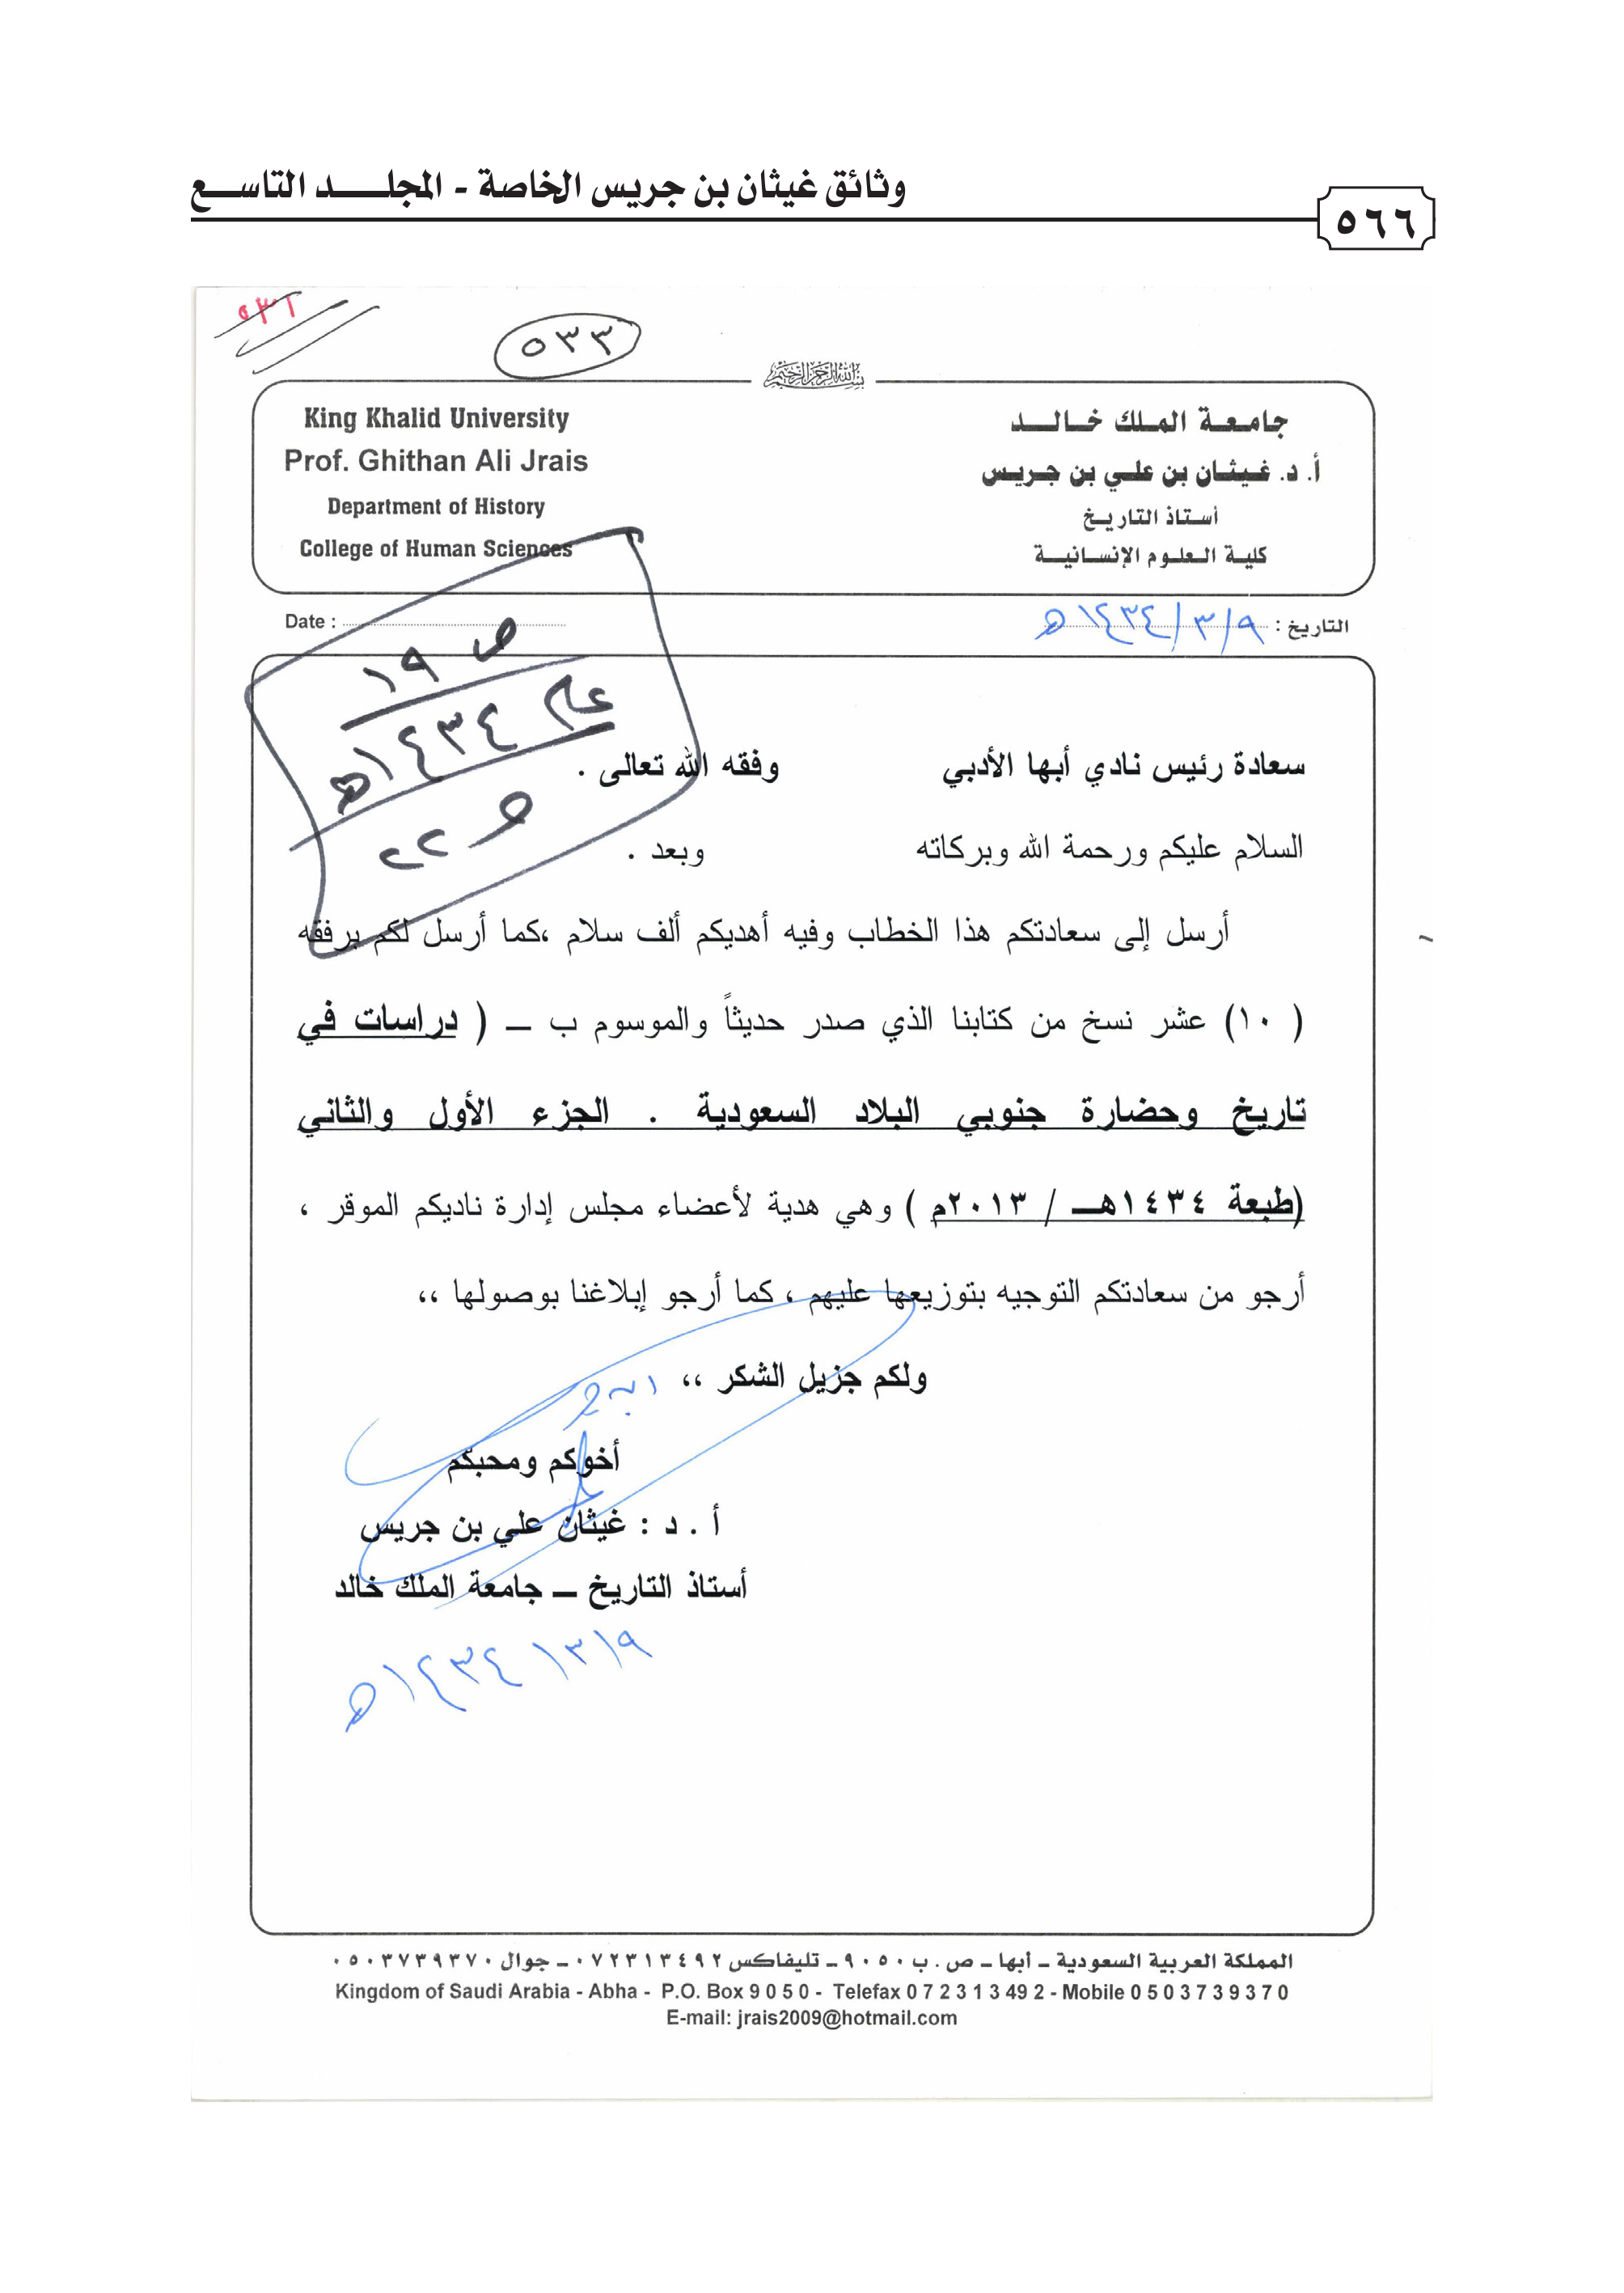 وثائق غيثان بن جريس الخاصة - المجلد التاسع
٥٦٦
٥٣٣
بسم الله الرحمن الرحيم
جامعة الملك خالد
أ. د. غيثان بن علي بن جريس
أستاذ التاريخ
كلية العلوم الإنسانية
King Khalid University
Prof. Ghithan Ali Jrais
Department of History
College of Human Sciences
التاريخ : ٩/٣/١٤٣٤هـ
Date :
١٩
عام ١٤٣٤هـ
٢٢
سعادة رئيس نادي أبها الأدبي وفقه الله تعالى .
السلام عليكم ورحمة الله وبركاته وبعد .
أرسل إلى سعادتكم هذا الخطاب وفيه أهديكم ألف سلام ،كما أرسل لكم برفقه
( ١٠) عشر نسخ من كتابنا الذي صدر حديثاً والموسوم ب ـ ( دراسات في
تاريخ وحضارة جنوبي البلاد السعودية . الجزء الأول والثاني
(طبعة ١٤٣٤هـ / ٢٠١٣م ) وهي هدية لأعضاء مجلس إدارة ناديكم الموقر ،
أرجو من سعادتكم التوجيه بتوزيعها عليهم ، كما أرجو إبلاغنا بوصولها ،،
ولكم جزيل الشكر ،،
أخوكم ومحبكم
أ . د : غيثان علي بن جريس
أستاذ التاريخ ـ جامعة الملك خالد
٩/٣/١٤٣٤هـ
المملكة العربية السعودية ـ أبها ـ ص . ب ٩٠٥٠ ـ تليفاكس ٠٧٢٣١٣٤٩٢ ـ جوال ٠٥٠٣٧٣٩٣٧٠
Kingdom of Saudi Arabia - Abha - P.O. Box 9 0 5 0 - Telefax 0 7 2 3 1 3 49 2 - Mobile 0 5 0 3 7 3 9 3 7 0
E-mail: jrais2009@hotmail.com